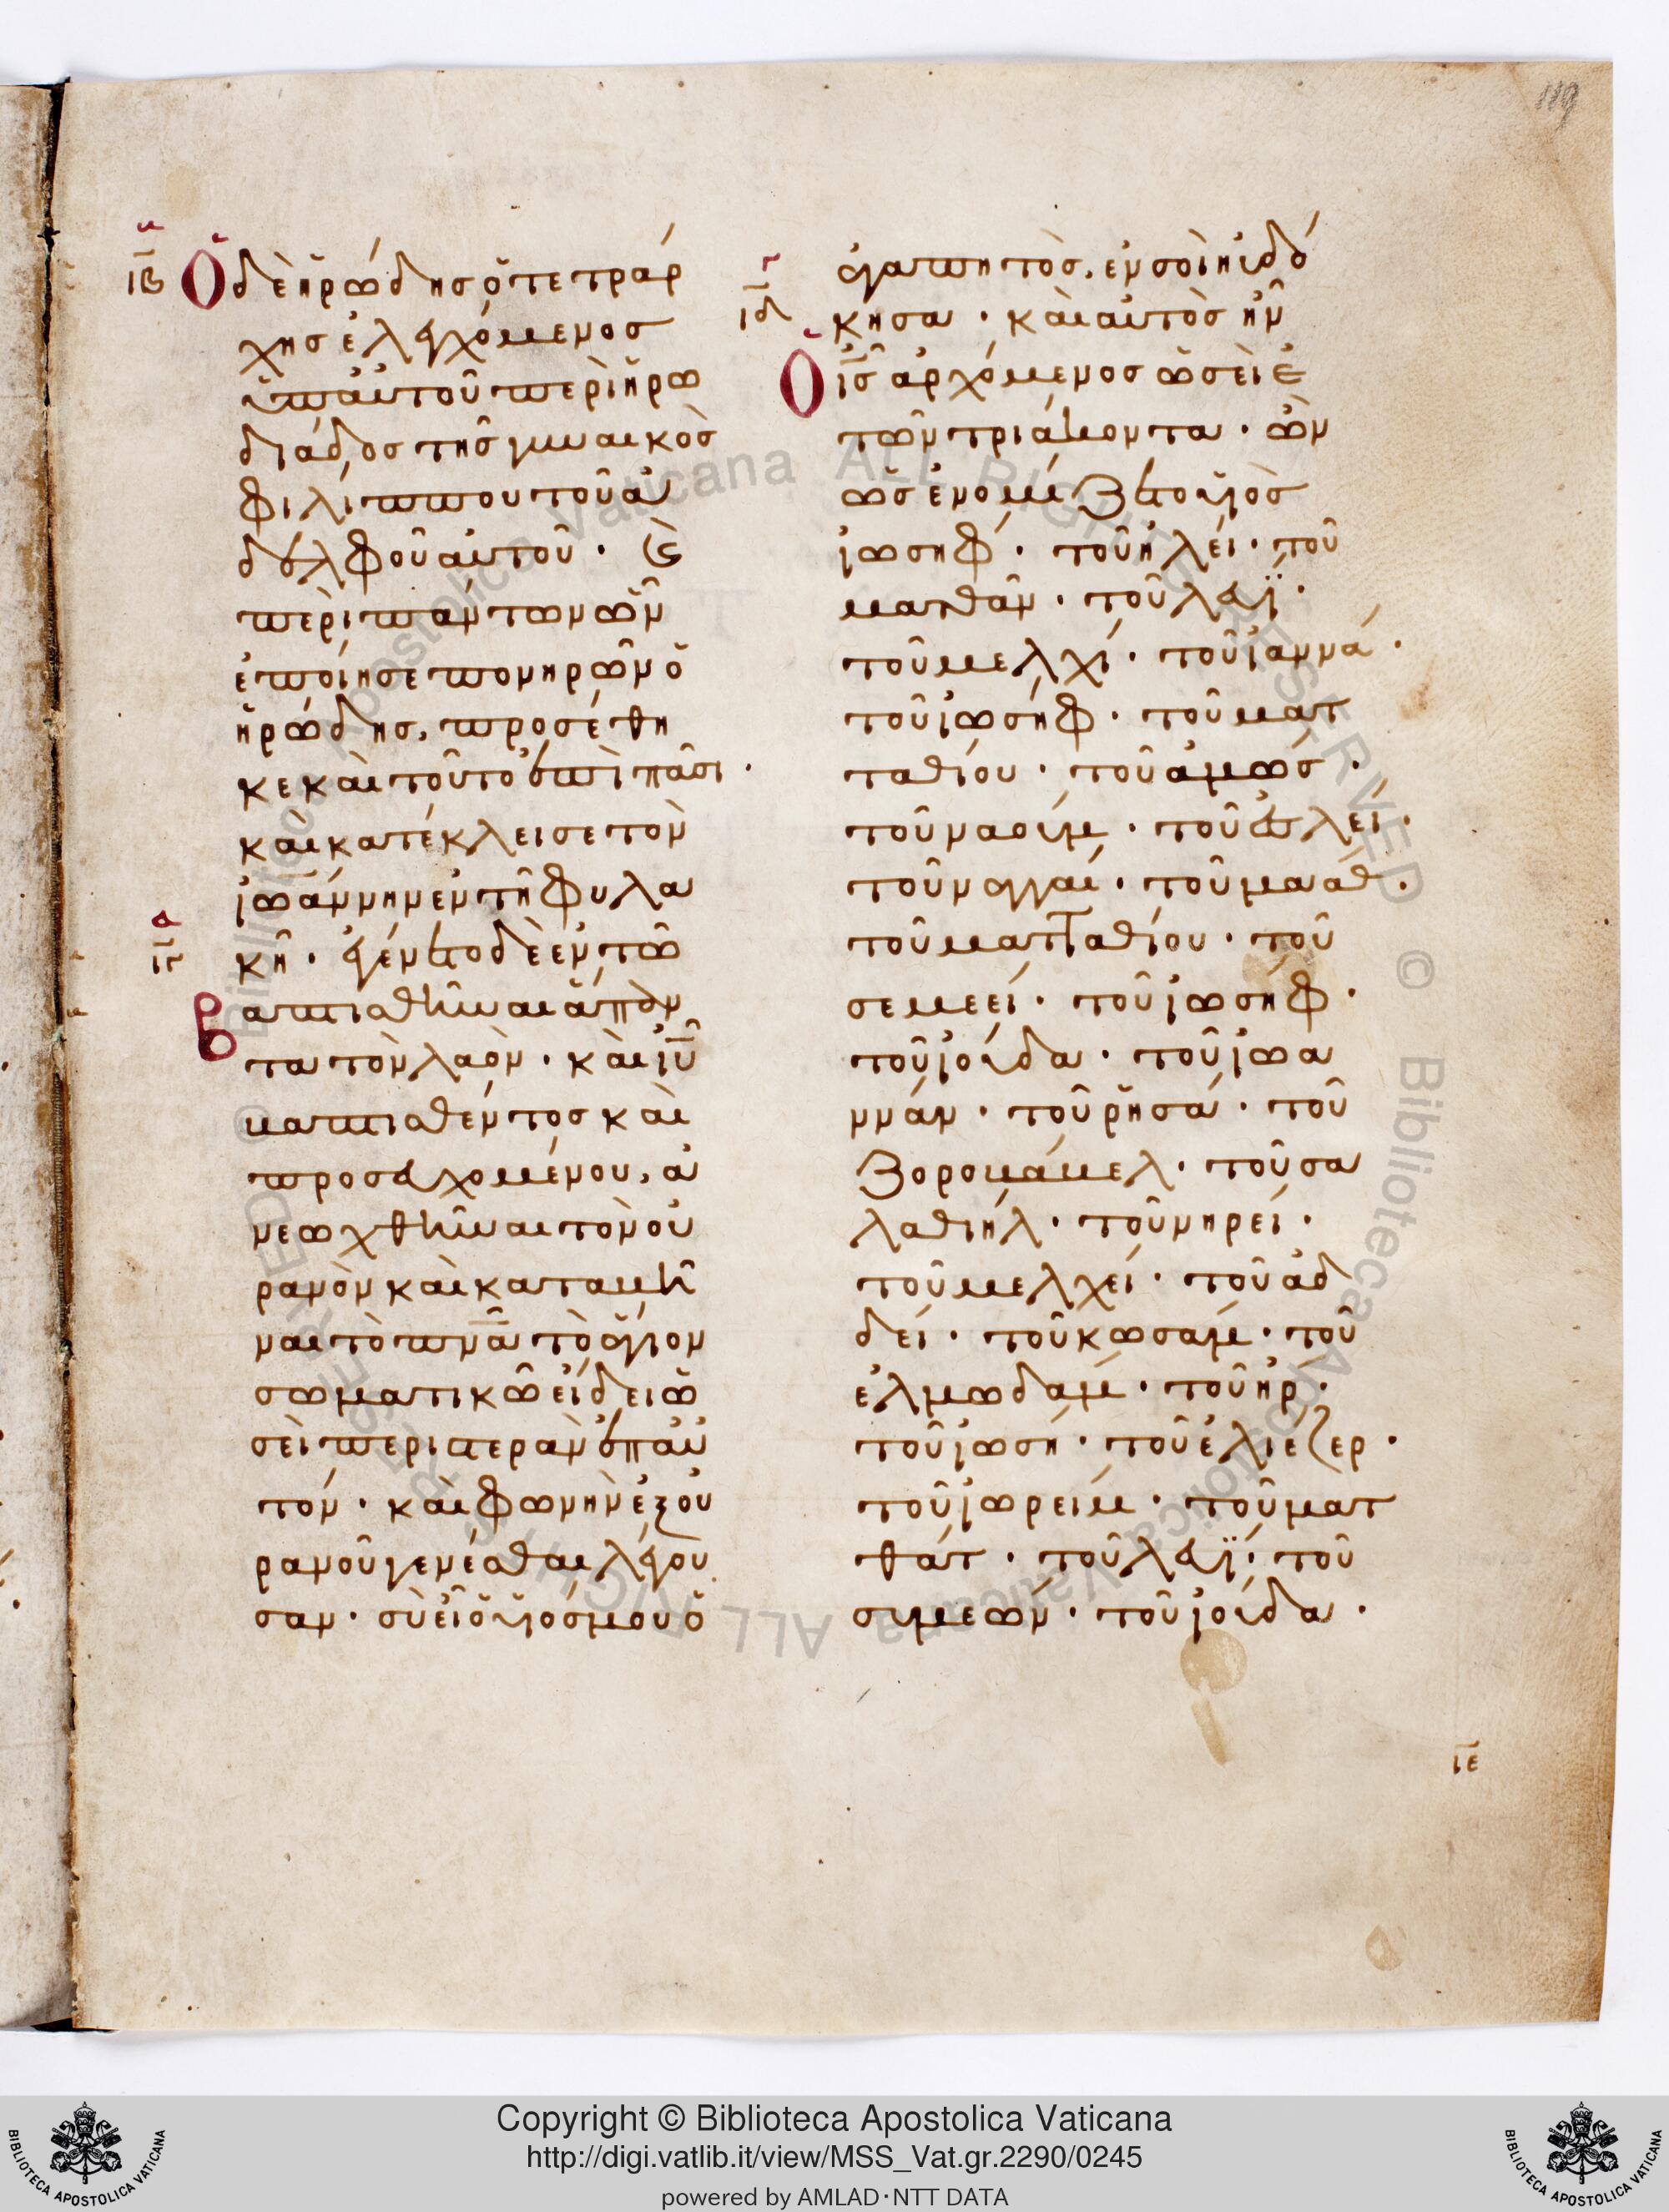 119
ιβ Ὁ δὲ ἡρώδησ ὁ τετράρ
χησ ἐλεγχόμενοσ
ὑπ᾽ αὐτοῦ περὶ ἡρω
διάδοσ τῆσ γυναικὸσ
φιλίππου τοῦ ἀ
δελφοῦ αὐτοῦ · κ(αὶ)
περὶ πάντων ὧν
ἐποίησε πονηρῶν ὁ
ἡρώδησ, προσέθη
κε καὶ τοῦτο ἐπὶ πᾶσι ·
καὶ κατέκλεισε τὸν
ἰωάννην ἐν τῇ φυλα
ιγ κῇ · ἐγένετο δὲ ἐν τῶ
βαπτισθῆναι ἅπαν
τα τὸν λαόν · καὶ ἰῦ
βαπτισθέντοσ καὶ
προσευχομένου, ἀ
νεωχθῆναι τὸν οὐ
ρανὸν καὶ καταβῆ
ναι τὸ πνᾶ τὸ ἅγιον
σωματικῶ εἴδει ὡ
σεὶ περιστερὰν ἐπ᾽ αὐ
τόν · καὶ φωνὴν ἐξ οὐ
ρανοῦ γενέσθαι λέγου
σαν · σὺ εἶ ὁ υἱόσ μου ὁ
ἀγαπητὸσ, ἐν σοὶ ηὐδό
ιδ κησα · καὶ αὐτὸσ ἦν
Ὁ ἰσ ἀρχόμενοσ ὡσεὶ ἐ
τῶν τριάκοντα · ὢν
ὡσ ἐνομίζετο υἱὸσ
ἰωσήφ · τοῦ ἡλεί · τοῦ
ματθάν · τοῦ λευΐ ·
τοῦ μελχί · τοῦ ἰαννά ·
τοῦ ἰωσήφ · τοῦ ματ
ταθίου · τοῦ ἀμώσ ·
τοῦ ναούμ · τοῦ ἐσλεί ·
τοῦ ναγγαί · τοῦ μαάθ ·
τοῦ ματταθίου · τοῦ
σεμεεί · τοῦ ἰωσήφ ·
τοῦ ἰούδα · τοῦ ἰωα
ννάν · τοῦ ῥησά · τοῦ
ζοροβάβελ · τοῦ σα
λαθιήλ · τοῦ νηρεί ·
τοῦ μελχεί · τοῦ ἀδ
δεί · τοῦ κωσάμ · τοῦ
ἐλμωδάμ · τοῦ ἤρ ·
τοῦ ἰωσή · τοῦ ἐλιέζερ ·
τοῦ ἰωρείμ · τοῦ ματ
θάτ · τοῦ λευΐ · τοῦ
συμεών · τοῦ ἰούδα ·
ιε
Copyright © Biblioteca Apostolica Vaticana
http://digi.vatlib.it/view/MSS_Vat.gr.2290/0245
powered by AMLAD·NTT DATA